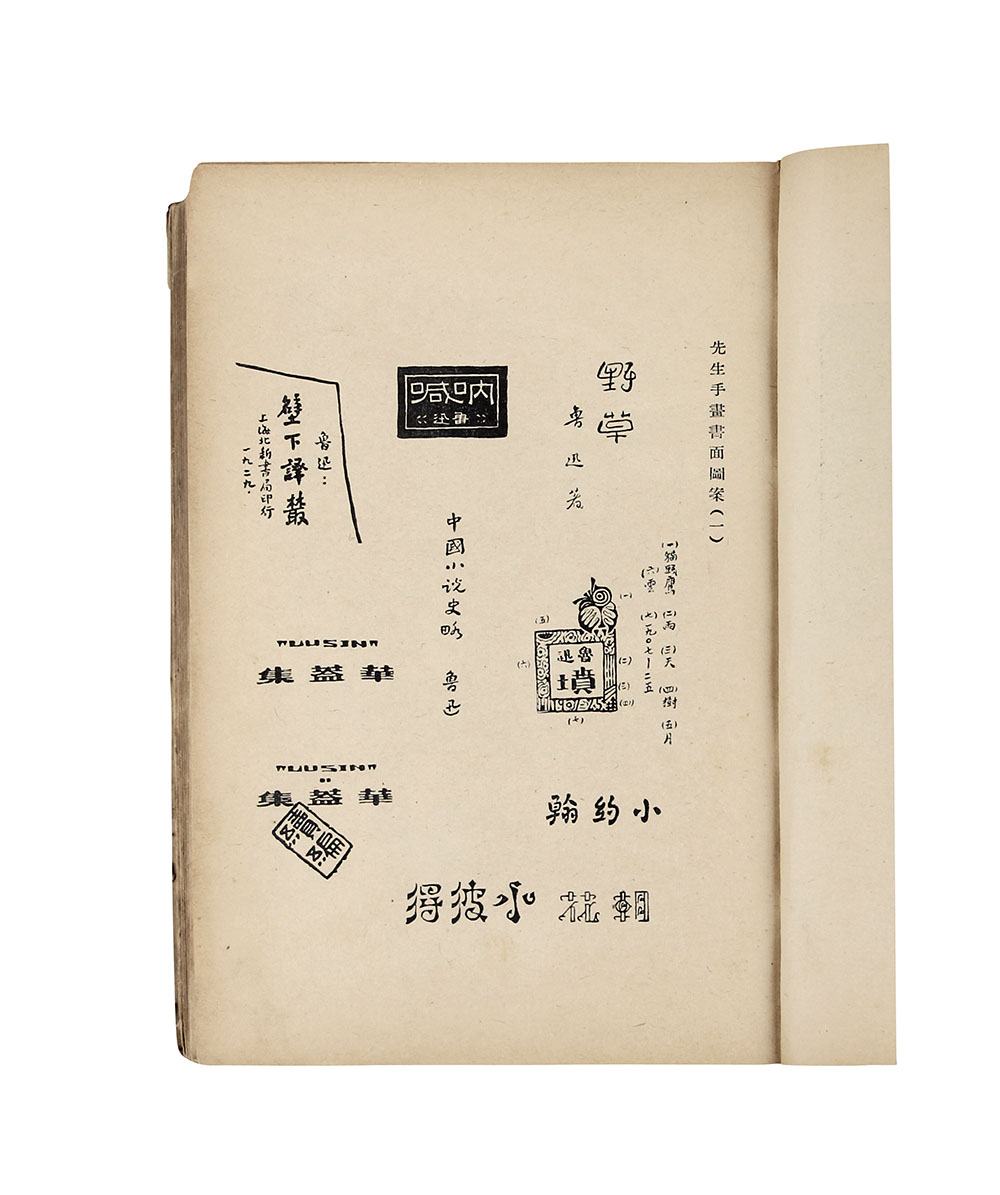 先生手畫書面圖案(一)
野草
魯迅著
(一)貓頭鷹 (二)雨 (三)天 (四)樹 (五)月
(六)雲 (七)一九〇七—二五
(一)
(二)
(三)
(四)
(五)
(六)
(七)
魯迅
墳
1907-25
小約翰
朝花
小彼得
吶喊
魯迅
中國小說史略 魯迅
魯迅:
壁下譯叢
上海北新書局印行
一九二九.
"LUSIN"
華蓋集
"LUSIN"
華蓋集
續編